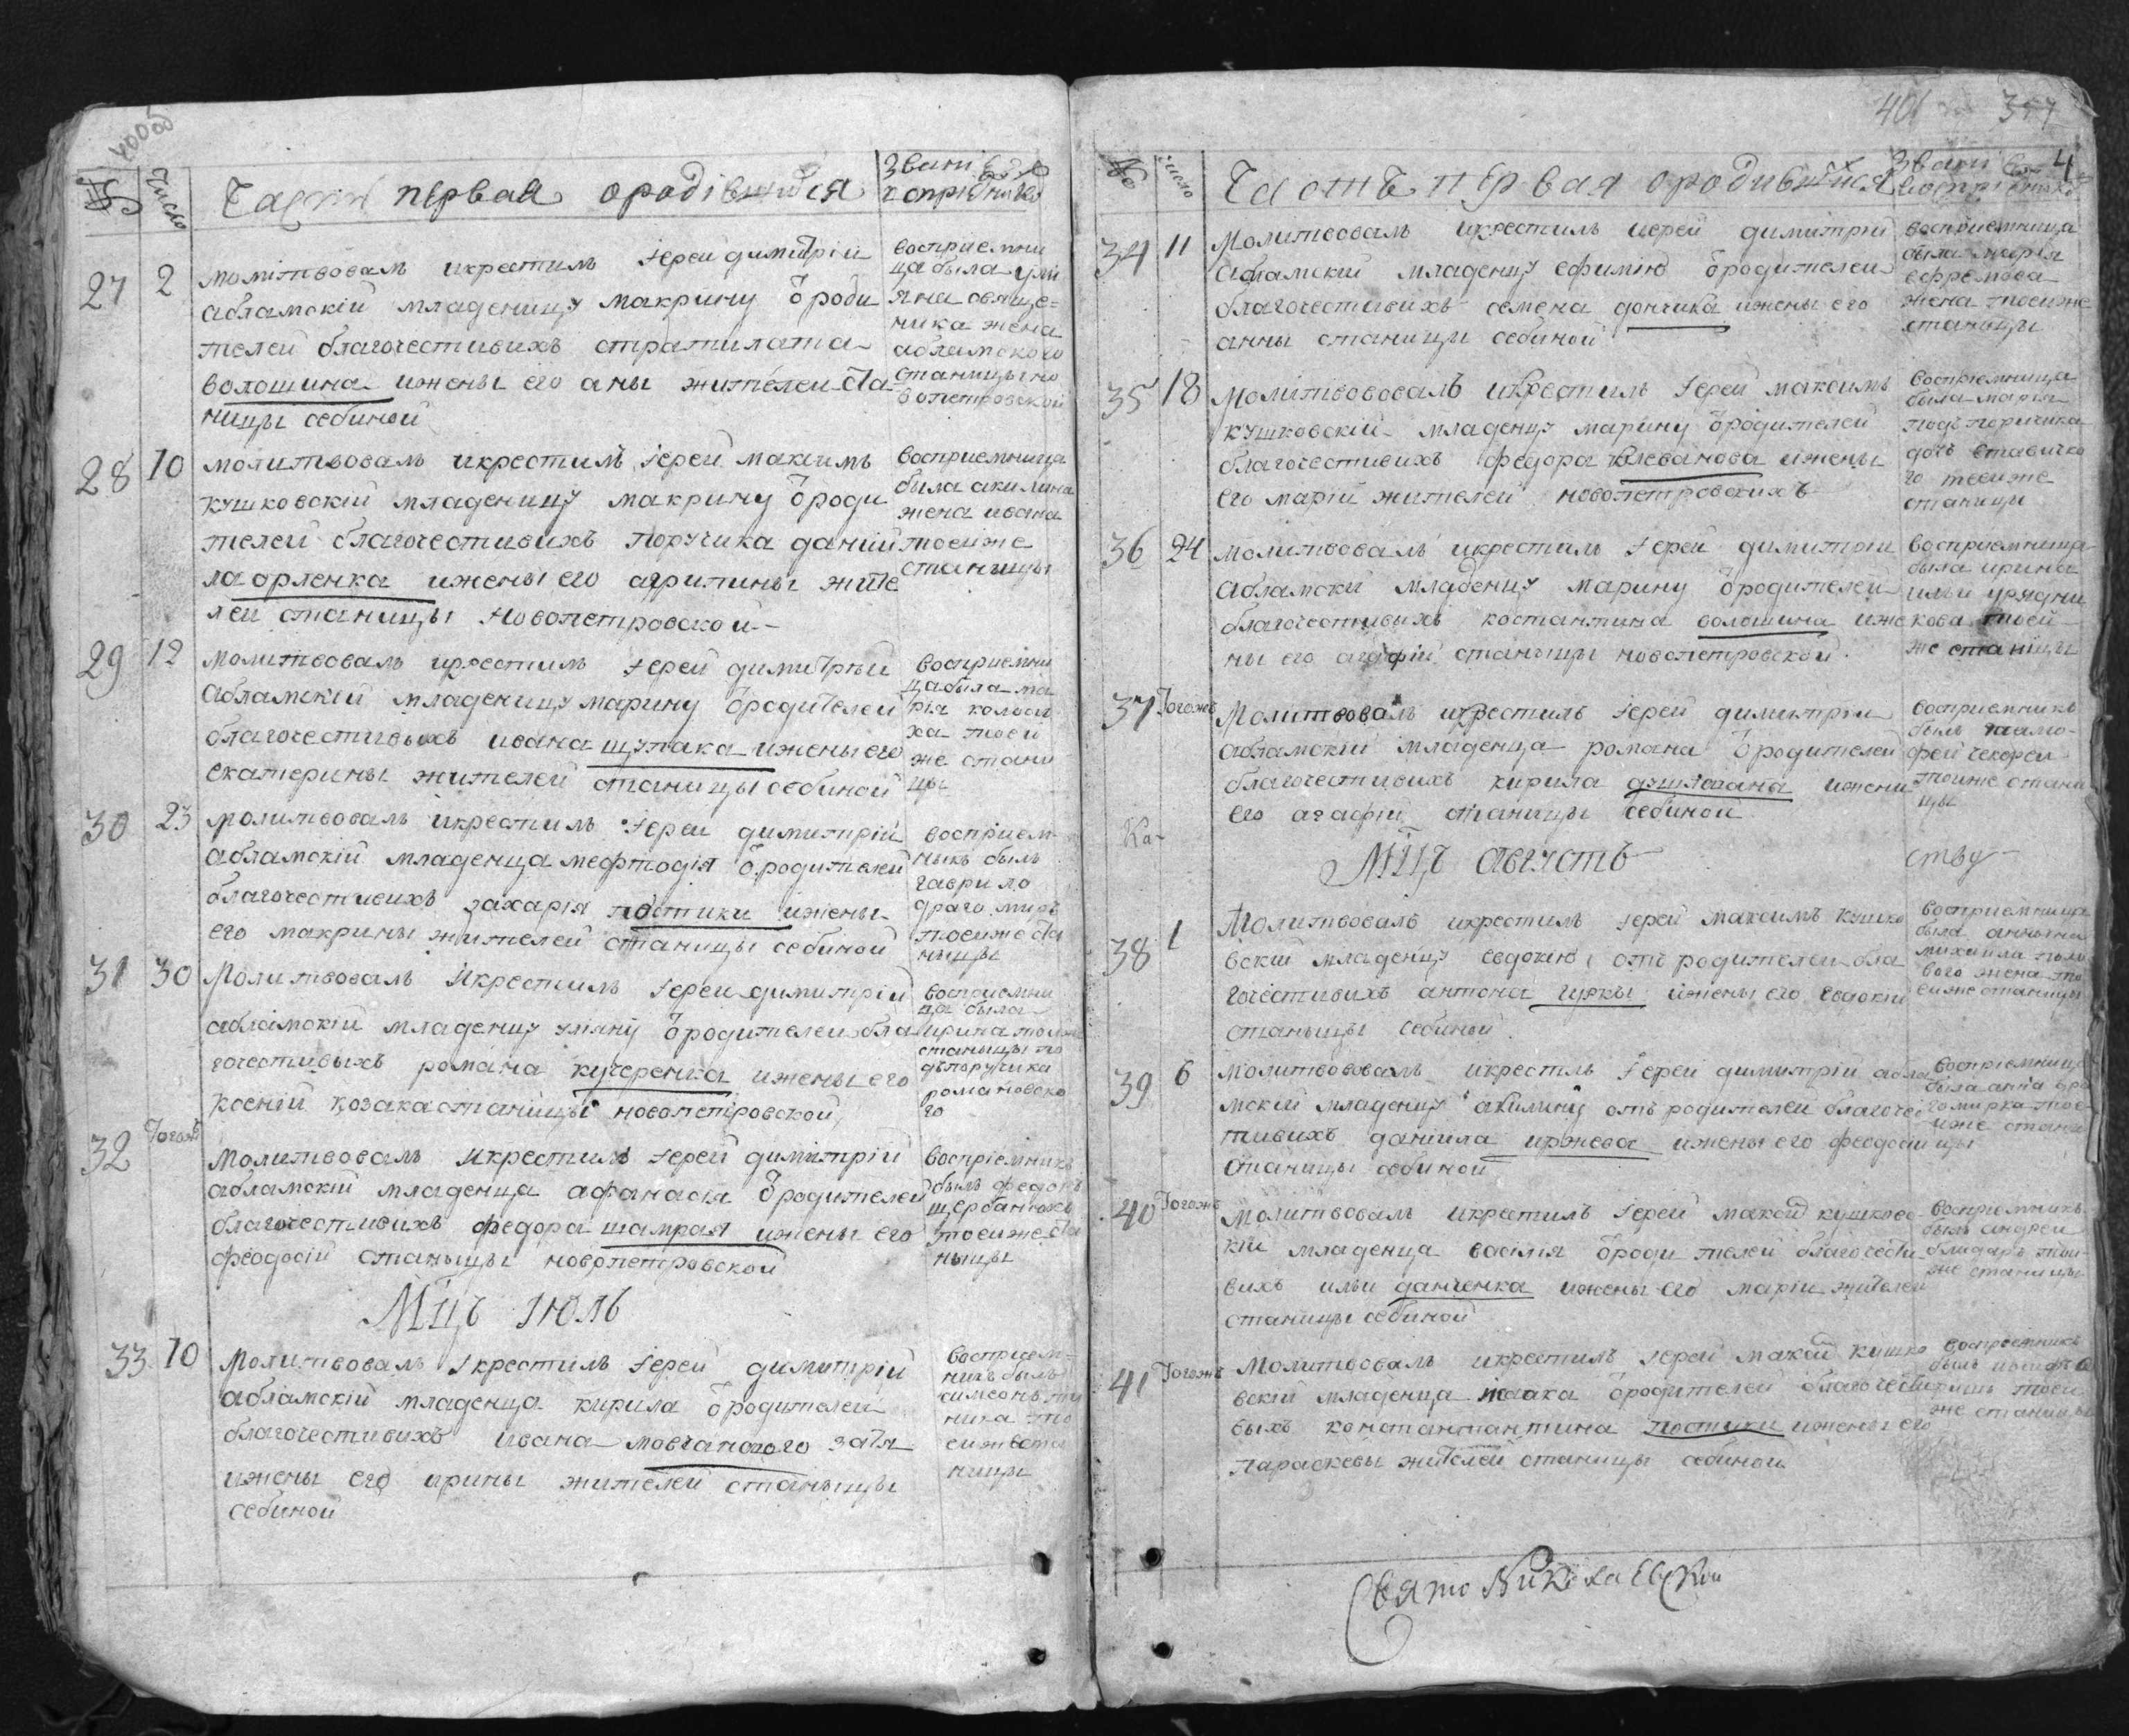 400об
№ Число
Часть первая ородівшихся
Звані
27 2
молітвовалъ икрестилъ іерей димитрій
абламскій младеницу макрину ѿроди
телей благочестивихъ стратилата
волошина ижены его аны жителей ста
ницы себиной
восприемни
ца была улі
яна свяще=
ника жена
абламского
станицы но
вопетровской
28 10
молитвовалъ икрестилъ іерей максимъ
кушковскій младеницу макрину ѿроди
телей благочестивихъ поручика даній
ла орленка ижены его агрипины жите
лей станицы новопетровской
восприемница
была акилина
жена ивана
тоеиже
станицы
29 12
молитвовалъ икрестилъ іерей димитрій
абламскій младеницу марину ѿродителей
благочестивыхъ ивана щупака ижены его
екатерины жителей станицы себиной
восприемни
ца была ма
рія
тоей
же стани
цы
30 23
молитвовалъ икрестилъ іерей димитрій
абламскій младенца мефтодія ѿродителей
благочестивихъ захарія постики ижены
его макрины жителей станицы себиной
восприем-
никъ былъ
гаврило
драго миръ
тоеиже ста
ницы
31 30
Молитвовалъ Икрестилъ іерей димитрій
абламскій младенцу уліяну ѿродителей бла
гочестивыхъ романа кучеренка ижены его
ксеніи козака станицы новопетровской
восприемни
ца была
ирина тоеиж
станицы по
дъпоручика
романовско
го
32 Тогожъ
Молитвовалъ Икрестилъ іерей димитрій
абламскій младенца афанасія ѿродителей
благочестивихъ федора шамрая ижены его
феодосіи станыцы новопетровской
воспріемникъ
былъ федоръ
щербанюкъ
тоеиже ста
ницы
Мцъ іюль
33 10
Молитвовалъ Ікрестилъ іерей димитрій
абламскій младенца кирила ѿродителей
благочестивихъ ивана мовчанского затя
ижены его ирины жителей станыцы
себиной
восприем-
никъ былъ
симеонъ
ника то
еижъ ста
ницы
401 397
4
№ число
Часть первая ородившихся
Звані
34 11
Молитвовалъ икрестилъ іерей димитрій
абламскій младенцу ефимію ѿродителей
благочестивихъ семена дончика ижены его
анны станицы себиной
восприемница
была марія
ефремова
жена тоеиже
станицы
35 18
Молитвововалъ икрестилъ іерей максимъ
кушковскій младенцу марину ѿродителей
благочестивихъ федора ижены
его марій жителей новопетровскихъ
воспріемница
была марія
подъпоричика
дочъ ставичко
го тоеиже
станицы
36 24
молитвовалъ икрестилъ іерей димитріи
абламскі младенцу марину ѿродителей
благочестивыхъ костантина волошина иже
ны его агафій станыцы новопетровской
восприемница
была ирина
ильи урядни
кова тоей
же станицы
37 Тогожъ
Молитвовалъ икрестилъ іерей димитріи
абламскій младенца романа ѿродителей
благочестивихъ кирила ижени
его агафіи станицы себиной
восприемникъ
былъ тимо-
фей
тоиже стани
цы
Ка-
Мцъ августъ
ству
38 1
Молитвовалъ икрестилъ іерей максимъ кушко
вскій младенцу евдокію отъ родителей бла
гочестивихъ антона гуркы ижены его евдокіи
станыцы себиной
воспріемница
была анна
михаила попо
вого жена то
еиже станицы
39 6
молитвововалъ икрестлъ іерей димитрій абла
мскій младенцу акилину отъ родителей благочес
тивихъ даніила иржева ижены его феодоси
станицы себиной
воспріемница
была анна дра
гомирка тое
иже стани
цы
40 Тогожъ
молитвовалъ икрестилъ іерей макси кушковс
кіи младенца василія ѿроди телей благочести
вихъ ильи данченка ижены его маріи жителей
станицы себиной
восприемникъ
былъ андрей
блидаръ тои-
же станицы
41 Тогожъ
Молитвовалъ икрестилъ іерей макси кушко
вскій младенца исаака ѿродителей благочести
выхъ константантина постики ижены его
параскевы жителей станицы себиной
воспріемникъ
былъ
тоеи
же станицы
Свято Николаевской